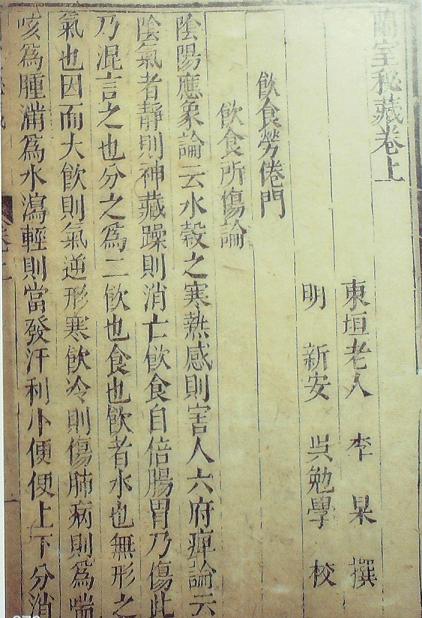 蘭室秘藏卷上
東垣老人 李杲 撰
明 新安 吳勉學 校
飲食勞倦門
飲食所傷論
陰陽應象論云水穀之寒熱感則害人六府痺論云
陰氣者靜則神藏躁則消亡飲食自倍腸胃乃傷此
乃混言之也分之爲二飲也食也飲者水也無形之
氣也因而大飲則氣逆形寒飲冷則傷肺病則爲喘
咳爲腫滿爲水瀉輕則當發汗利小便使上下分消